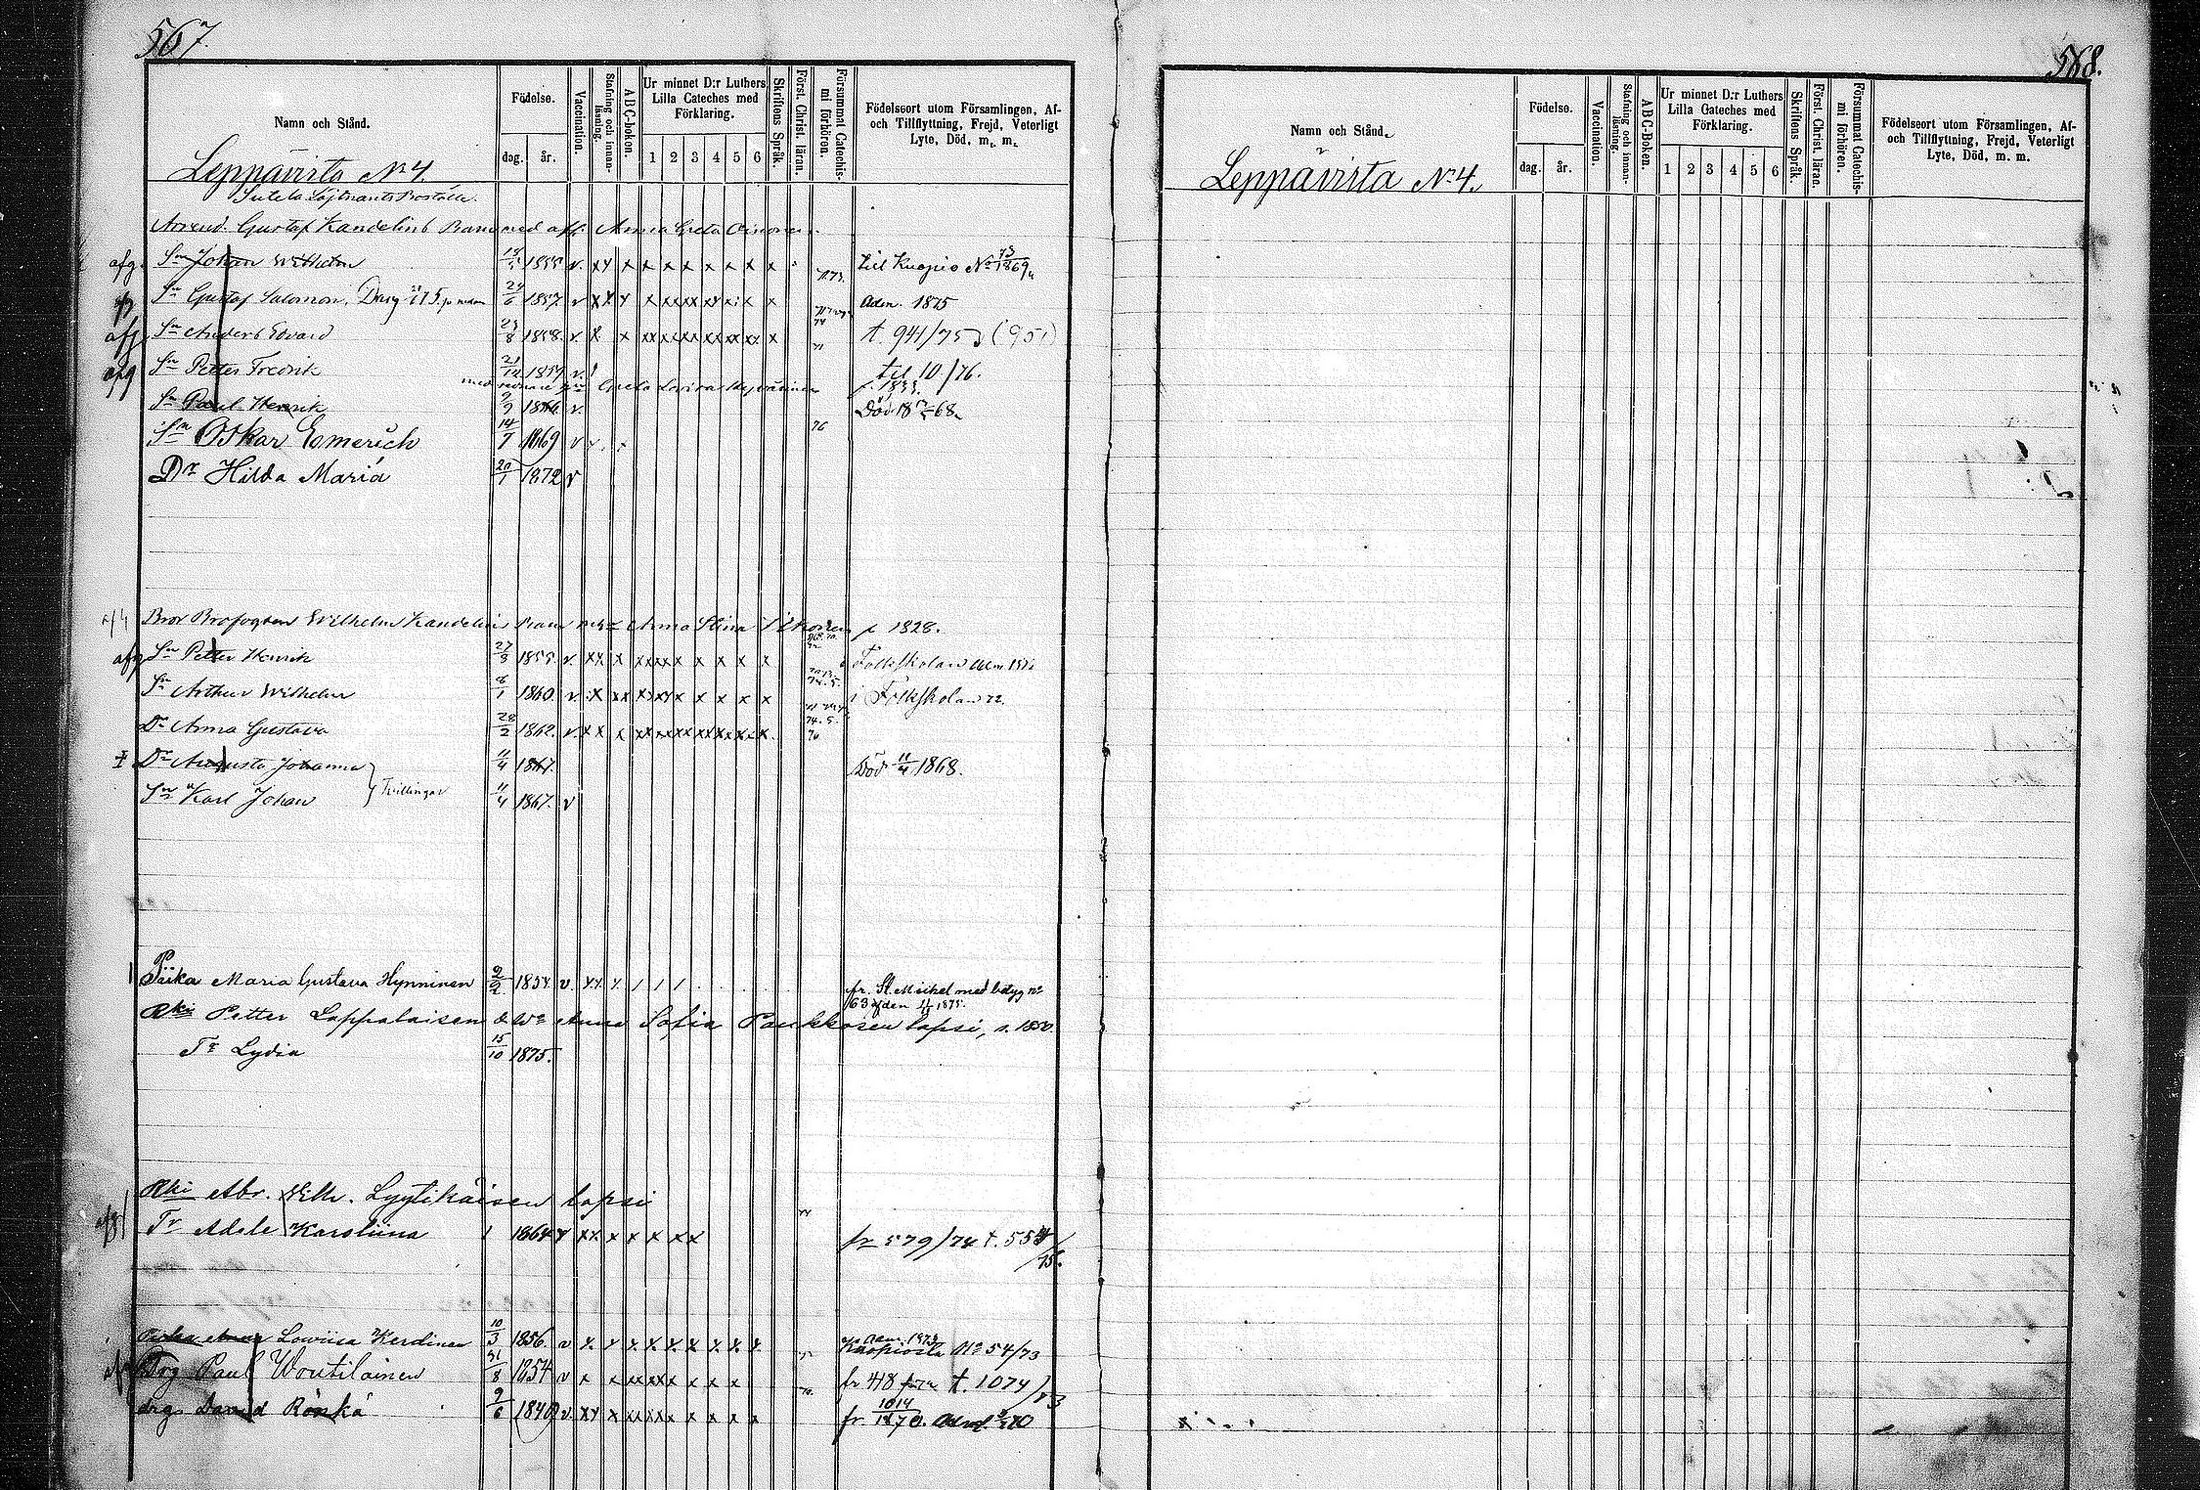 567.
Namn och Stånd.
Födelse.
dag. år.
Vaccination.
Stafning och innan-läsning.
ABC-boken.
Ur minnet D:r Luthers Lilla Cateches med Förklaring.
1 2 3 4 5 6
Skriftens Språk.
Först. Christ. läran.
Försummat Catechis-mi förhören.
Födelseort utom Församlingen, Af- och Tillflyttning, Frejd, Veterligt Lyte, Död, m. m.
Leppävirta No 4.
Sutela Löjtnants Boställe.
Arrend. Gustaf Kandelins Barn med afl. Anna Greta Oinonen
afg. Sn Johan Wilhelm 1855 v. x x x x x x x x x x till Kuopio No 73/1869
Sn Gustaf Salomon. 24/6 1857 v x x x x x x x x x Adm. 1875
afg Sn Anders Edvard 23/8 1858. v. x x x x x x x x x x t. 941/75 (951)
afg Sn Petter Fredrik 21/12 1859 v. til 10/76.
med senare Greta Lovisa f. 1833.
Sn Paul Henrik 9/9 1866 v. Död 68.
Sn Oskar Emerich 14/7 1869 v 76
Dr Hilda Maria 20/1 1872 v
Bror Brofogden Wilhelm Kandelins Barn med Anna Stina f. 1828.
afg Sn Petter Henrik 27/3 1855. v. x x x x x x x x x x x Folkskolan Adm.
Sn Arthur Wilhelm 8/1 1860. v. x x x x x x x x x x i Folkskolan 72.
Dr Anna Gustava 28/2 1862. v. x x x x x x x x x x x 76
Dr Augusta Johanna 11/4 1867. Död 11/4 1868.
Tvillingar
Sn Karl Johan 11/4 1867. v
Piika Maria Gustava Hynninen 9/2 1854 v. x x x / / / fr. St. Mickel med betyg No 63 af den 1875.
Rki Petter Lappalaisen & Wo Anna Sofia Paukkosen lapsi, s. 1850.
Tr Lydia 15/10 1875.
Rki Abr. Wilh. Lyytikäisen lapsi
afg Tr Adele Karoliina 1 1864 v x x x x x x x fr 579/74 t. 554/75.
Piika Anna Loviisa Kerdinen 10/3 1856 v x x x x x x x x x Adm. 1873 Kuopiosta No 54/73
Drg Paul Woutilainen 31/8 1854 v x x x x x x x x x fr 418 t. 1074/73
drg. David Rönkä 9/6 1849 v. x x x x x x x x x x fr 1014/1870. Adm. 70
568.
Namn och Stånd.
Födelse.
dag. år.
Vaccination.
Stafning och innan-läsning.
ABC-Boken.
Ur minnet D:r Luthers Lilla Cateches med Förklaring.
1 2 3 4 5 6
Skriftens Språk.
Först. Christ. läran.
Försummat Catechis-mi förhören.
Födelseort utom Församlingen, Af- och Tillflyttning, Frejd, Veterligt Lyte, Död, m. m.
Leppävirta No 4.